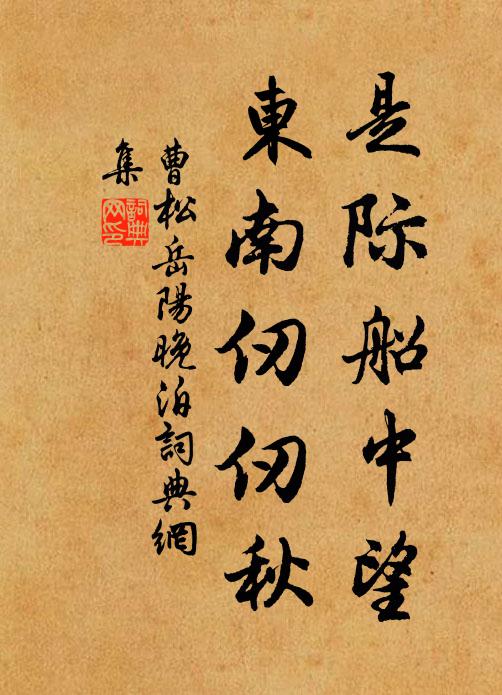 是际船中望
東南仞仞秋
曹松岳陽晚泊詞典網
集
詞典
网印